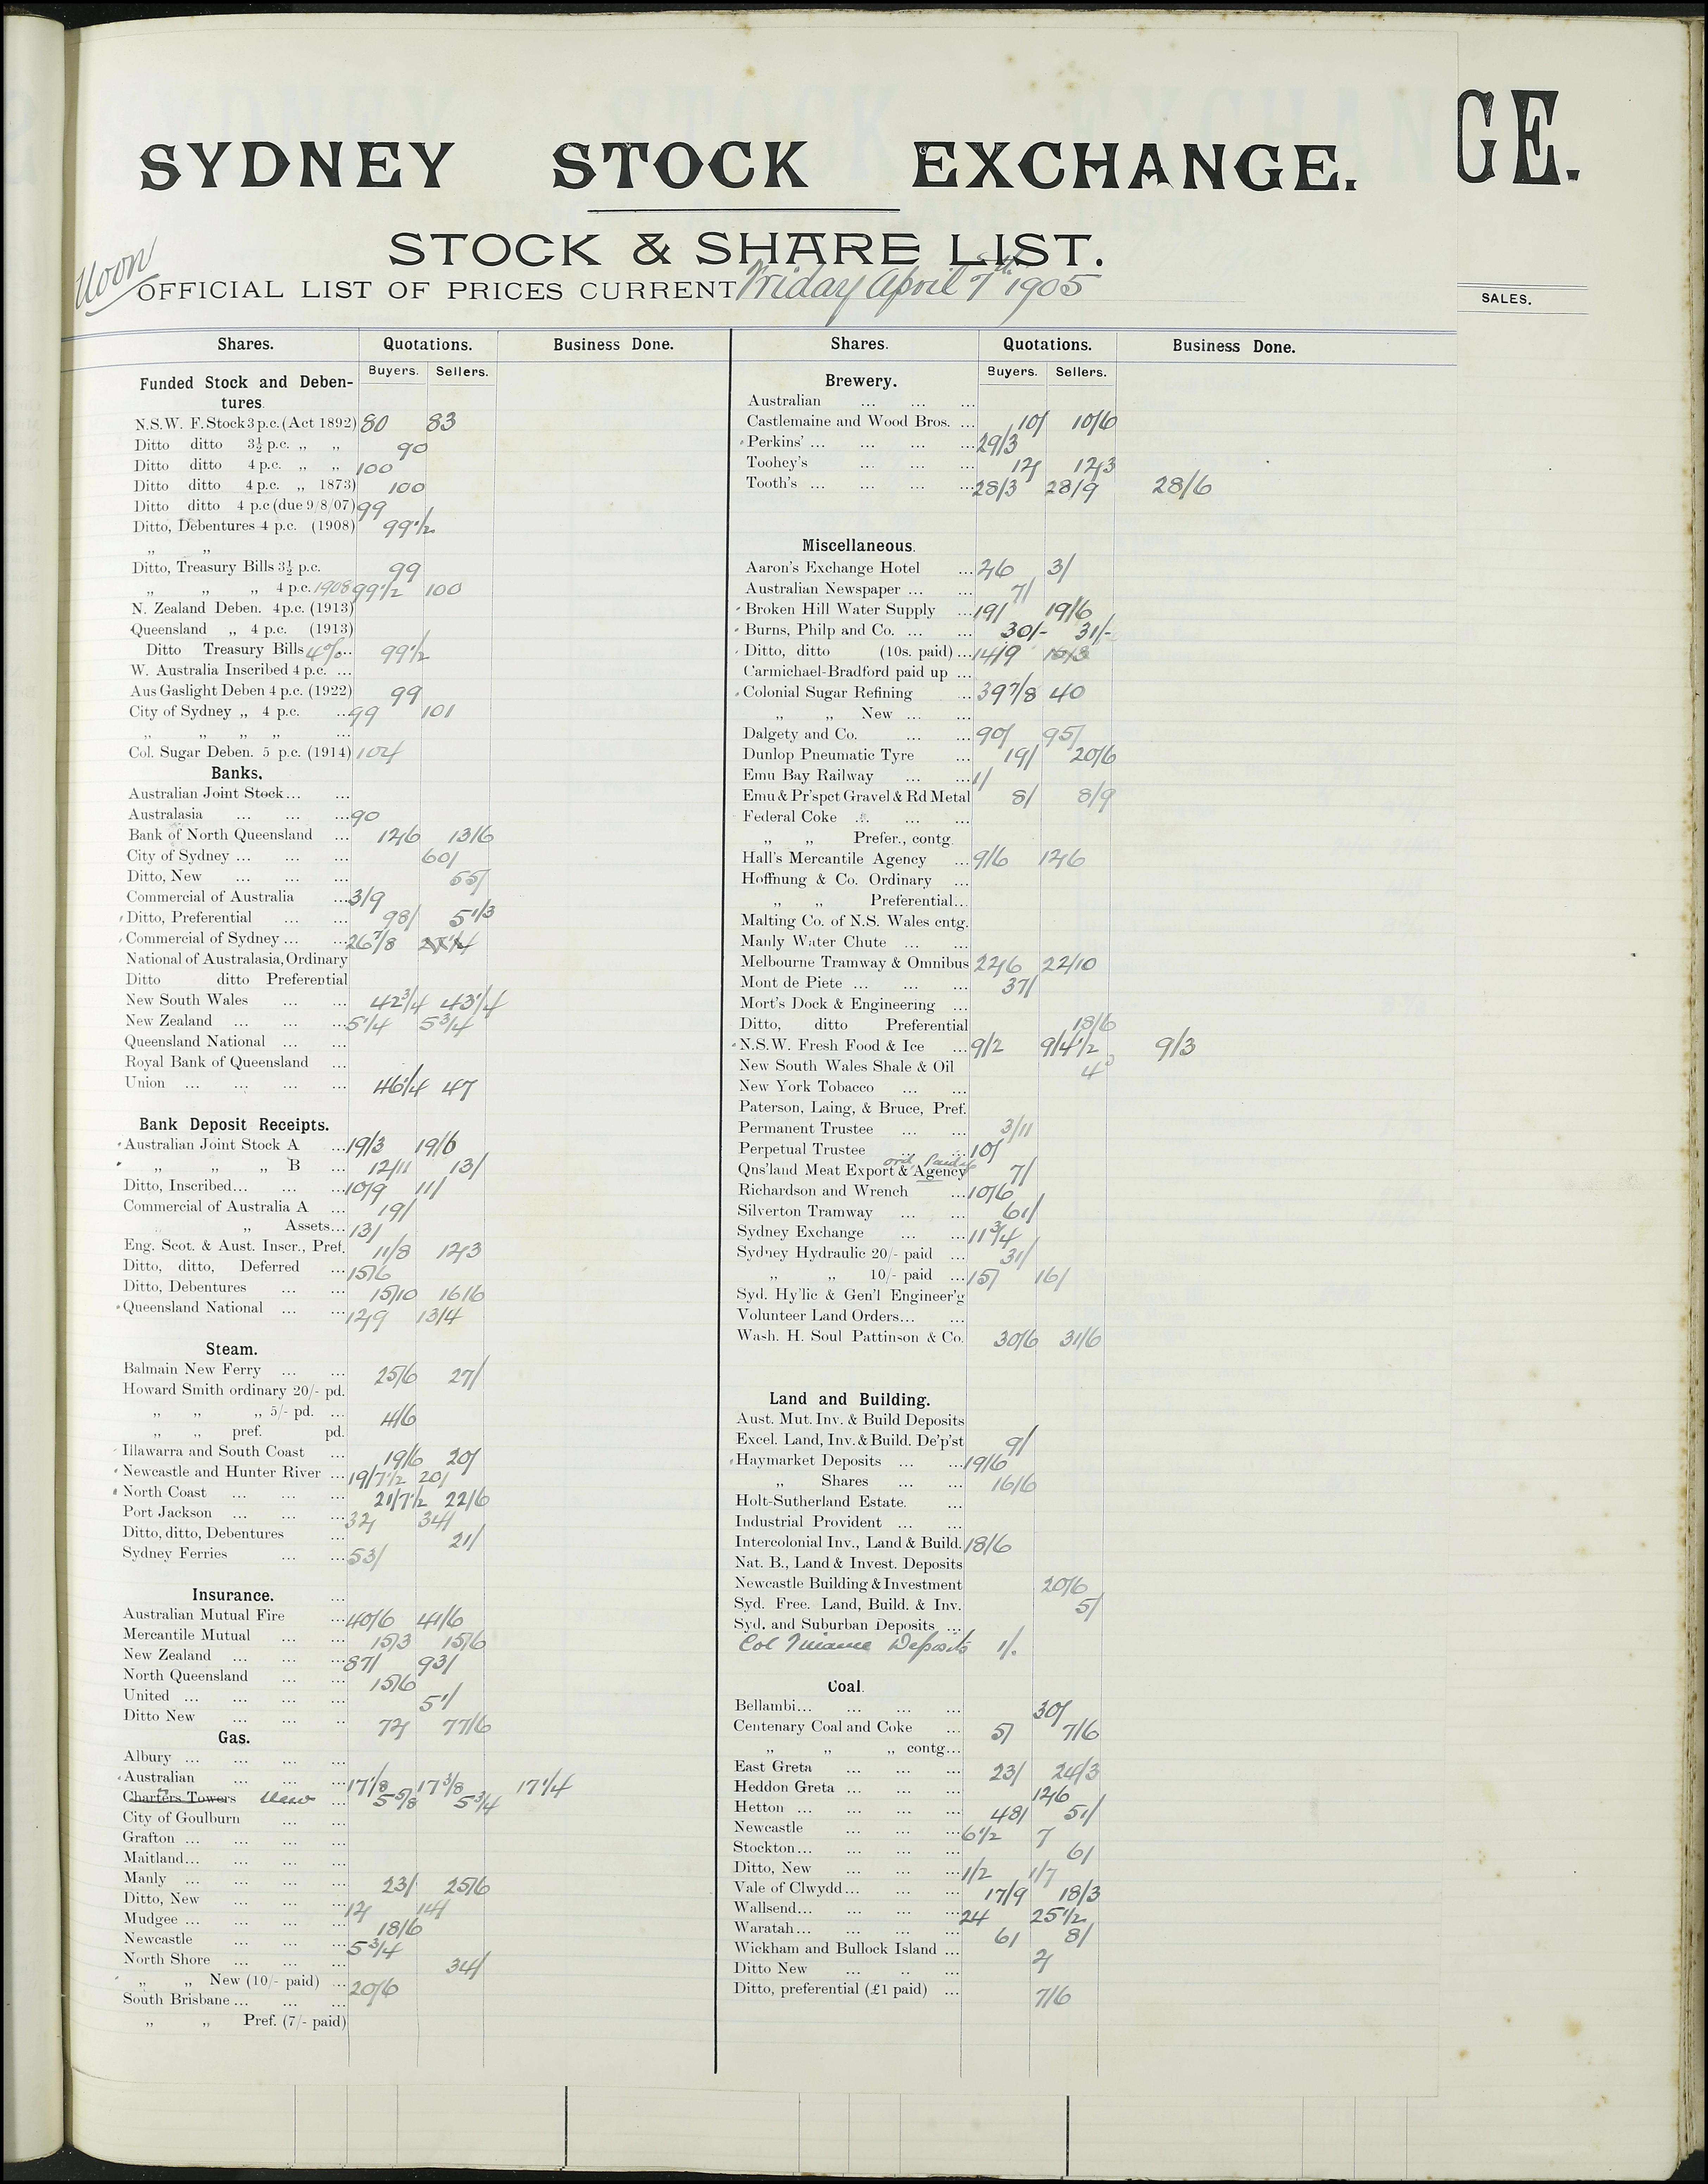 SYDNEY STOCK EXCHANGE.
GE.
STOCK & SHARE LIST.
Noon
OFFICIAL LIST OF PRICES CURRENT Friday April 7th 1905
SALES.
Shares. Quotations. Business Done.
Buyers. Sellers.
Funded Stock and Deben-
tures.
N.S.W. F. Stock 3 p.c. (Act 1892) 80 83
Ditto ditto 3½ p.c. „ „ 90
Ditto ditto 4 p.c. „ „ 100
Ditto ditto 4 p.c. „ 1873) 100
Ditto ditto 4 p.c (due 9/8/07) 99
Ditto, Debentures 4 p.c. (1908) 99½
„ „
Ditto, Treasury Bills 3½ p.c. 99
„ „ „ 4 p.c. 1908 99½ 100
N. Zealand Deben. 4 p.c. (1913)
Queensland „ 4 p.c. (1913)
Ditto Treasury Bills 4%... 99½
W. Australia Inscribed 4 p.c. ...
Aus Gaslight Deben 4 p.c. (1922) 99
City of Sydney „ 4 p.c. ... 99 101
„ „ „ „ ...
Col. Sugar Deben. 5 p.c. (1914) 104
Banks.
Australian Joint Stock... ...
Australasia ... ... ... 90
Bank of North Queensland ... 12/6 13/6
City of Sydney ... ... ... 60/
Ditto, New ... ... ... 55/
Commercial of Australia ... 3/9
Ditto, Preferential ... ... 98/
Commercial of Sydney ... ... 26⅞
National of Australasia, Ordinary
Ditto ditto Preferential
New South Wales ... ... 42¾ 43¼
New Zealand ... ... ... 5¼ 5¾
Queensland National ... ...
Royal Bank of Queensland ...
Union ... ... ... ... 46¼ 47
Bank Deposit Receipts.
Australian Joint Stock A ... 19/3 19/6
„ „ „ B ... 12/11 13/
Ditto, Inscribed... ... ... 10/9 11/
Commercial of Australia A ... 19/
„ Assets... 13/
Eng. Scot. & Aust. Inscr., Pref. 11/8 12/3
Ditto, ditto, Deferred ... 15/6
Ditto, Debentures ... ... 15/10 16/6
Queensland National ... ... 12/9 13/4
Steam.
Balmain New Ferry ... ... 25/6 27/
Howard Smith ordinary 20/- pd.
„ „ „ 5/- pd. ... 4/6
„ „ pref. pd.
Illawarra and South Coast ... 19/6 20/
Newcastle and Hunter River ... 19/7½ 20/
North Coast ... ... ... 21/7½ 22/6
Port Jackson ... ... ... 32/ 34/
Ditto, ditto, Debentures ... 21/
Sydney Ferries ... ... 53/
Insurance. ...
Australian Mutual Fire ... 40/6 41/6
Mercantile Mutual ... ... 15/3 15/6
New Zealand ... ... ... 87/ 93/
North Queensland ... ... 15/6
United ... ... ... ... 51/
Ditto New ... ... .. 72/ 77/6
Gas.
Albury ... ... ... ...
Australian ... ... ... 17⅛ 17⅜ 17¼
Charters Towers New ... 5⅝ 5¾
City of Goulburn ... ...
Grafton ... ... ... ...
Maitland... ... ... ...
Manly ... ... ... ... 23/ 25/6
Ditto, New ... ... ... 12/ 14/
Mudgee ... ... ... ... 18/6
Newcastle ... ... ... 5¾
North Shore ... ... ... 34/
„ „ New (10/- paid) ... 20/6
South Brisbane ... ... ...
„ „ Pref. (7/- paid)
Shares. Quotations. Business Done.
Buyers. Sellers.
Brewery.
Australian ... ... ...
Castlemaine and Wood Bros. ... 10/ 10/6
Perkins' ... ... ... ... 29/3
Toohey's ... ... ... 12/ 12/3
Tooth's ... ... ... ... 28/3 28/9 28/6
Miscellaneous.
Aaron's Exchange Hotel ... 2/6 3/
Australian Newspaper ... ... 7/
Broken Hill Water Supply ... 19/ 19/6
Burns, Philp and Co. ... ... 30/- 31/-
Ditto, ditto (10s. paid) ... 14/9 15/3
Carmichael-Bradford paid up ...
Colonial Sugar Refining ... 39⅞ 40
„ „ New ... ...
Dalgety and Co. ... ... 90/ 95/
Dunlop Pneumatic Tyre ... 19/ 20/6
Emu Bay Railway ... ... 1/
Emu & Pr'spct Gravel & Rd Metal 8/ 8/9
Federal Coke ... ... ...
„ „ Prefer., contg.
Hall's Mercantile Agency ... 9/6 12/6
Hoffnung & Co. Ordinary ...
„ „ Preferential...
Malting Co. of N.S. Wales cntg.
Manly Water Chute ... ...
Melbourne Tramway & Omnibus 22/6 22/10
Mont de Piete ... ... ... 37/
Mort's Dock & Engineering ...
Ditto, ditto Preferential 18/6
N.S.W. Fresh Food & Ice ... 9/2 9/4½ 9/3
New South Wales Shale & Oil
New York Tobacco ... ...
Paterson, Laing, & Bruce, Pref.
Permanent Trustee ... ... 3/11
Perpetual Trustee ... ... 10/
ord. Paid
Qns'land Meat Export & Agency 7/
Richardson and Wrench ... 10/6
Silverton Tramway ... ... 61/
Sydney Exchange ... ... 11¾
Sydney Hydraulic 20/- paid ... 31/
„ „ 10/- paid ... 15/ 16/
Syd. Hy'lic & Gen'l Engineer'g
Volunteer Land Orders... ...
Wash. H. Soul Pattinson & Co. 30/6 31/6
Land and Building.
Aust. Mut. Inv. & Build Deposits
Excel. Land, Inv. & Build. De'p'st 9/
Haymarket Deposits ... ... 19/6
„ Shares ... ... 16/6
Holt-Sutherland Estate. ...
Industrial Provident ... ...
Intercolonial Inv., Land & Build. 18/6
Nat. B., Land & Invest. Deposits
Newcastle Building & Investment 20/6
Syd. Free. Land, Build. & Inv. 5/
Syd. and Suburban Deposits ...
Col Finance Deposits 1/.
Coal.
Bellambi... ... ... ... 30/
Centenary Coal and Coke ... 5/ 7/6
„ „ „ contg...
East Greta ... ... ... 23/ 24/3
Heddon Greta ... ... ... 12/6
Hetton ... ... ... ... 48/ 51/
Newcastle ... ... ... 6½ 7
Stockton... ... ... ... 6/
Ditto, New ... ... ... 1/2 1/7
Vale of Clwydd... ... ... 17/9 18/3
Wallsend... ... ... ... 24 25½
Waratah... ... ... ... 6/ 8/
Wickham and Bullock Island ... 2/
Ditto New ... .. ...
Ditto, preferential (£1 paid) ... 7/6